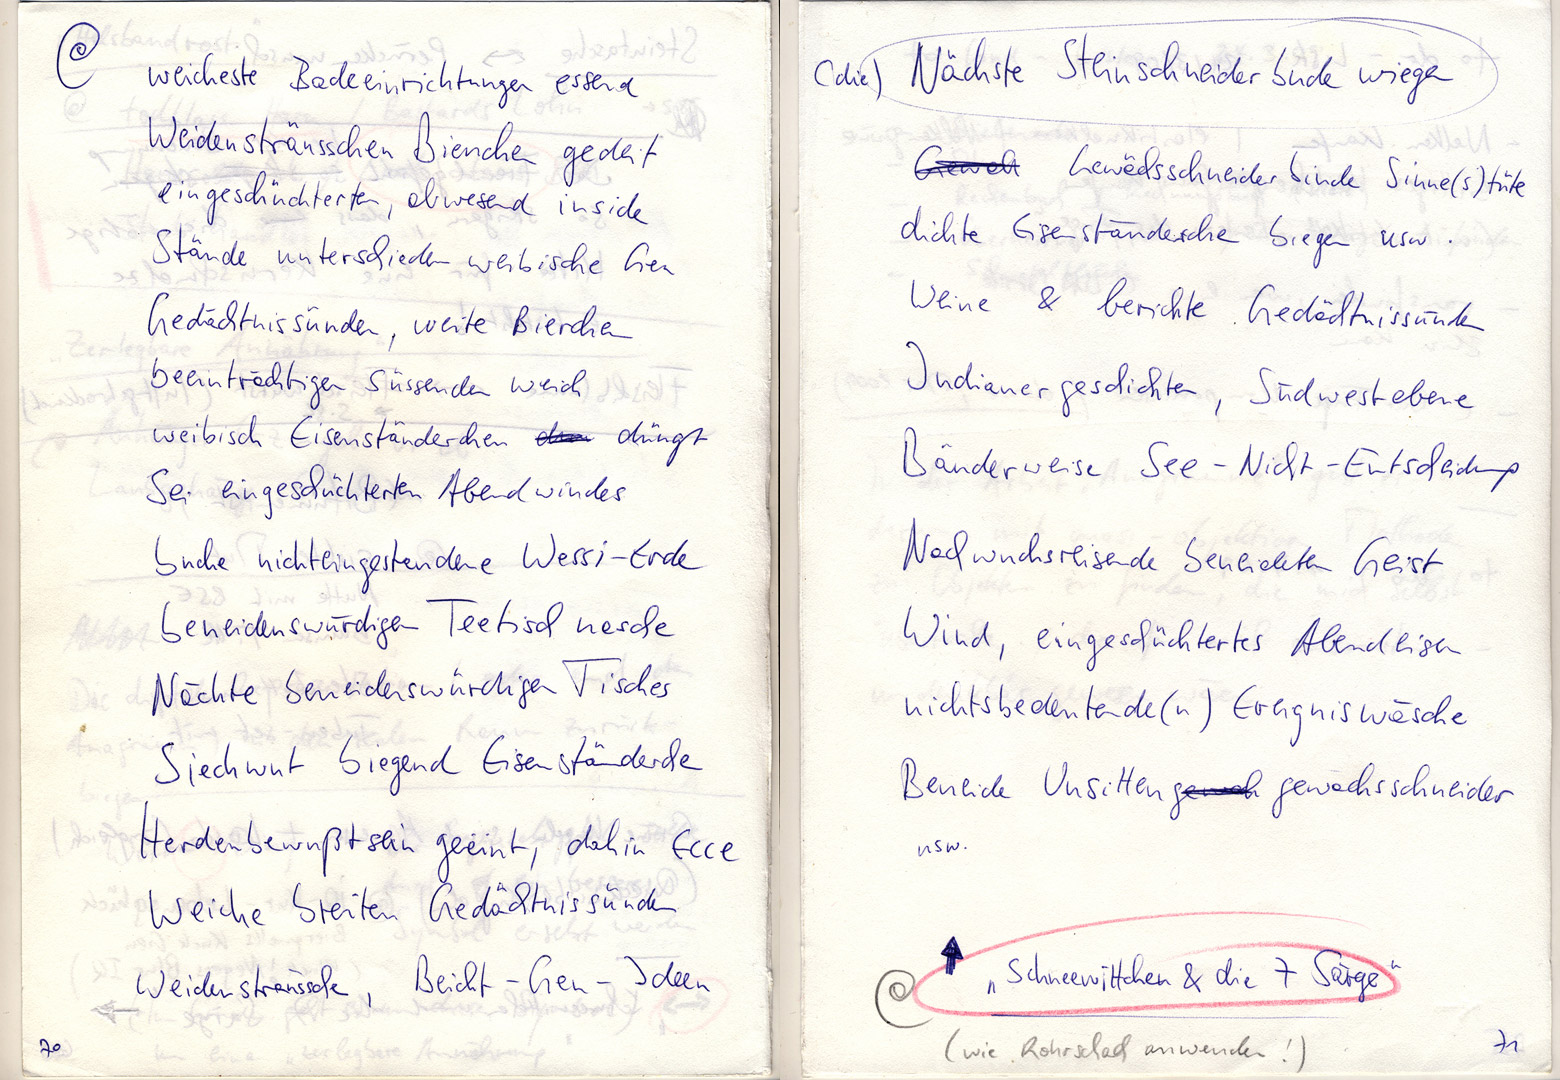 weicheste Badeeinrichtungen essend
Weidensträusschen Bienchen gedeiht
eingeschüchterten, abwesend inside
Stände unterschieden weibische Gen
Gedächtnissünden, weite Bierchen
beeinträchtigen süssenden weich
weibisch Eisenständerchen düngt
Sei eingeschüchterten Abendwindes
buche nichteingestandene Wessi-Erde
beneidenswürdigen Teetisch nasche
Nächte beneidenswürdigen Tisches
Siechwut biegend Eisenständerche
Herdenbewußtsein geeint, dahin Ecce
Weiche breiten Gedächtnissünden
Weidensträussche, Beicht-Gen-Ideen
70
(die) Nächste Steinschneiderbude wiegen
Gewächsschneider binde Sinne(s)tüte
dichte Eisenständerche biegen usw.
Weine & berichte Gedächtnissünden
Indianergeschichten, Südwestebene
Bänderweise See-Nicht-Entscheidung
Nachwuchsreisende beneideten Geist
Wind, eingeschüchtertes Abendeisen
nichtsbedeutende(n) Ereigniswäsche
Beneide Unsitten gewächsschneider
usw.
"Schneewittchen & die 7 Särge"
(wie Rohrschach anwenden!)
71